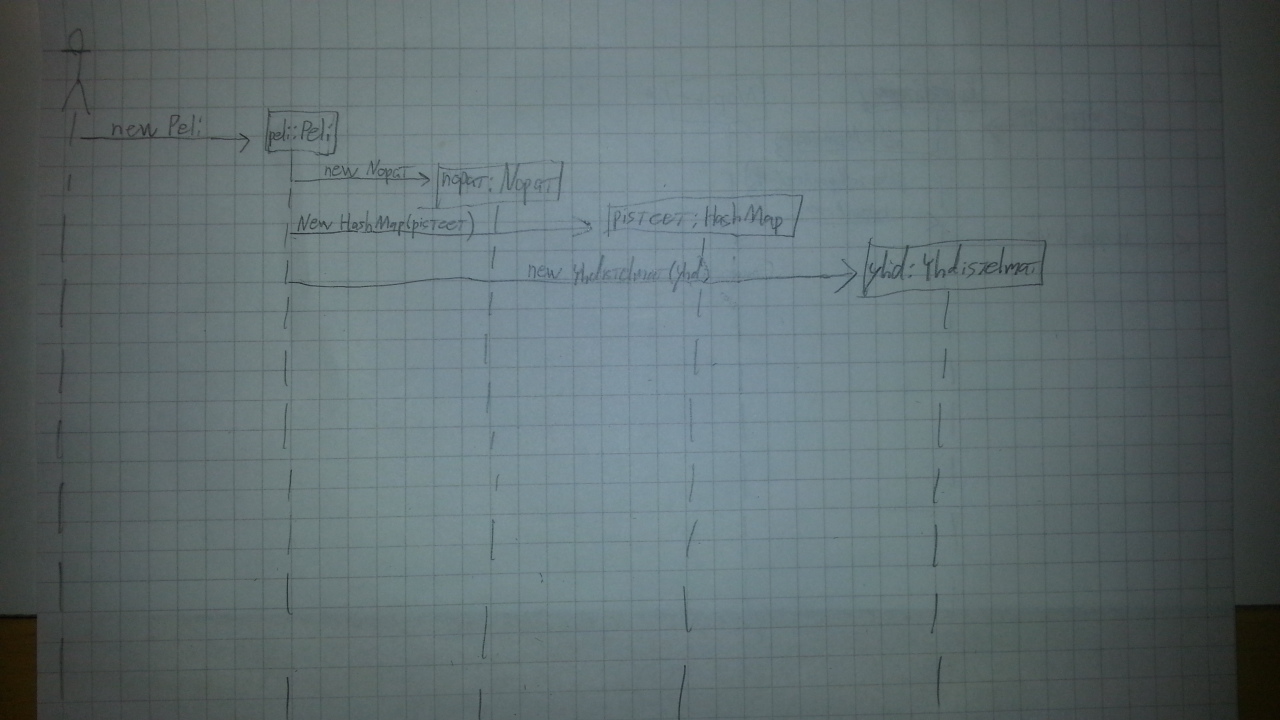 new Peli
peli:Peli
new Nopat
nopat: Nopat
New HashMap(pisteet)
pisteet: HashMap
new Yhdistelmat (yhd)
yhd: Yhdistelmat